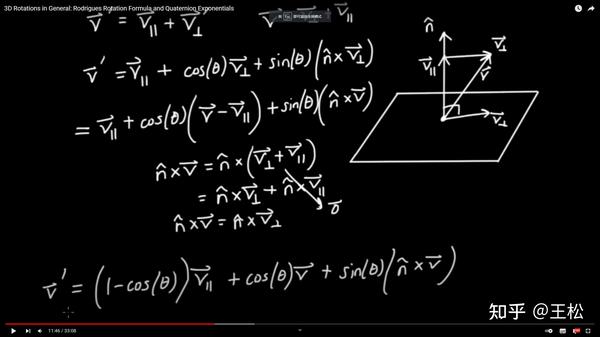 3D Rotations in General: Rodrigues Rotation Formula and Quaternion Exponentials
v⃗' = v⃗∥ + v⃗⊥'
v⃗' = v⃗∥ + cos(θ)v⃗⊥ + sin(θ)(n̂×v⃗⊥)
= v⃗∥ + cos(θ)(v⃗-v⃗∥) + sin(θ)(n̂×v⃗)
n̂×v⃗ = n̂×(v⃗⊥+v⃗∥)
= n̂×v⃗⊥ + n̂×v⃗∥
0⃗
n̂×v⃗ = n̂×v⃗⊥
v⃗' = (1-cos(θ))v⃗∥ + cos(θ)v⃗ + sin(θ)(n̂×v⃗)
n̂
v⃗⊥
v⃗∥
v⃗
v⃗⊥
知乎 @王松
11:46 / 33:08